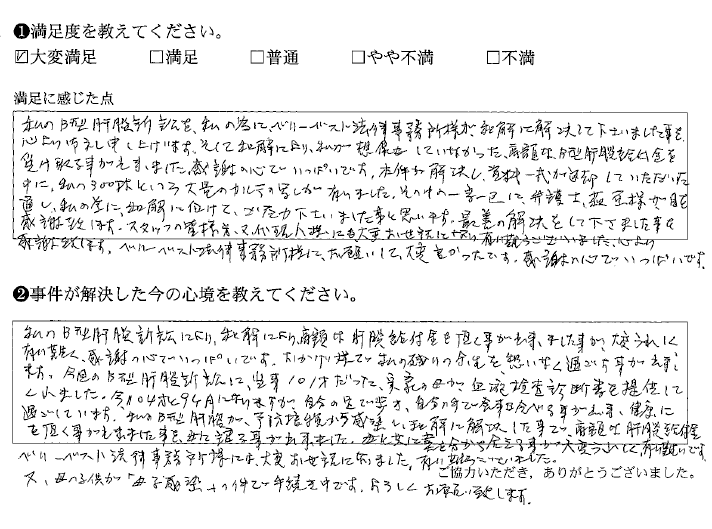 ❶満足度を教えてください。
☑大変満足 □満足 □普通 □やや不満 □不満
満足に感じた点
私のB型肝股訴訟を、私の為にベリーベスト法律事務所様が、和解に解決して下さいました事を、
心よりお礼し申し上げます。そして和解により、私が想像をしていなかった、高額なB型肝股給付金を
受け取る事が出来ました。感謝の心でいっぱいです。本件が解決し、資料一式が返却していただいた
中に、私の300枚という大量のカルテの写しが有りました。その中の一言一句に、弁護士、様が目を
通し、私の為に、和解に向けて、ご尽力下さいました事と思います。最善の解決をして下さました事を
感謝致します。スタッフの皆様方、又代理人様にも大変お世話になり有難うございました。心より
感謝致します。ベリーベスト法律事務所様に、お願いして、大変良かったです。感謝の心でいっぱいです。
❷事件が解決した今の心境を教えてください。
私のB型肝股訴訟により、和解により、高額な肝股給付金を頂く事が出来ました事が大変うれしく
有難く、感謝の心でいっぱいです。おかげ様で私の残りの余生を思いなく過ごす事が出来
ます。今回のB型肝股訴訟に、当年101才だった、実家の母が血液検査診断書を提供して
くれました。今は104才と9ヶ月になりますが、自分の足で歩き、自分の手で食事を食べる事が出来、健康に
過ごしています。私のB型肝股が、予防接種から感染し、和解に解決した事で、高額な肝股給付金
を頂く事が出来ました事を、母に語る事が出来ました。
ベリーベスト法律事務所様には、大変お世話になりました。有難うございました。
ご協力いただき、ありがとうございました。
又、母の子供が「母子感染」の件で手続き中です。よろしくお願い致します。